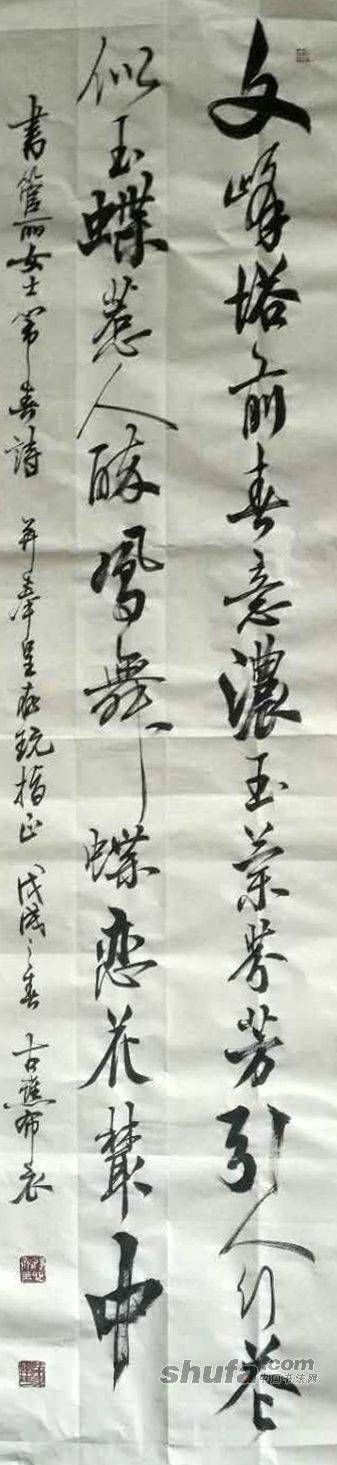 文峰塔前春意濃玉蘭芬芳引人行花
似玉蝶惹人醉鳳舞蝶戀花叢中
書管丽女士第春詩 並奉呈雅玩指正 戊戌之春 古譙布衣
shufa.com
中国书法网